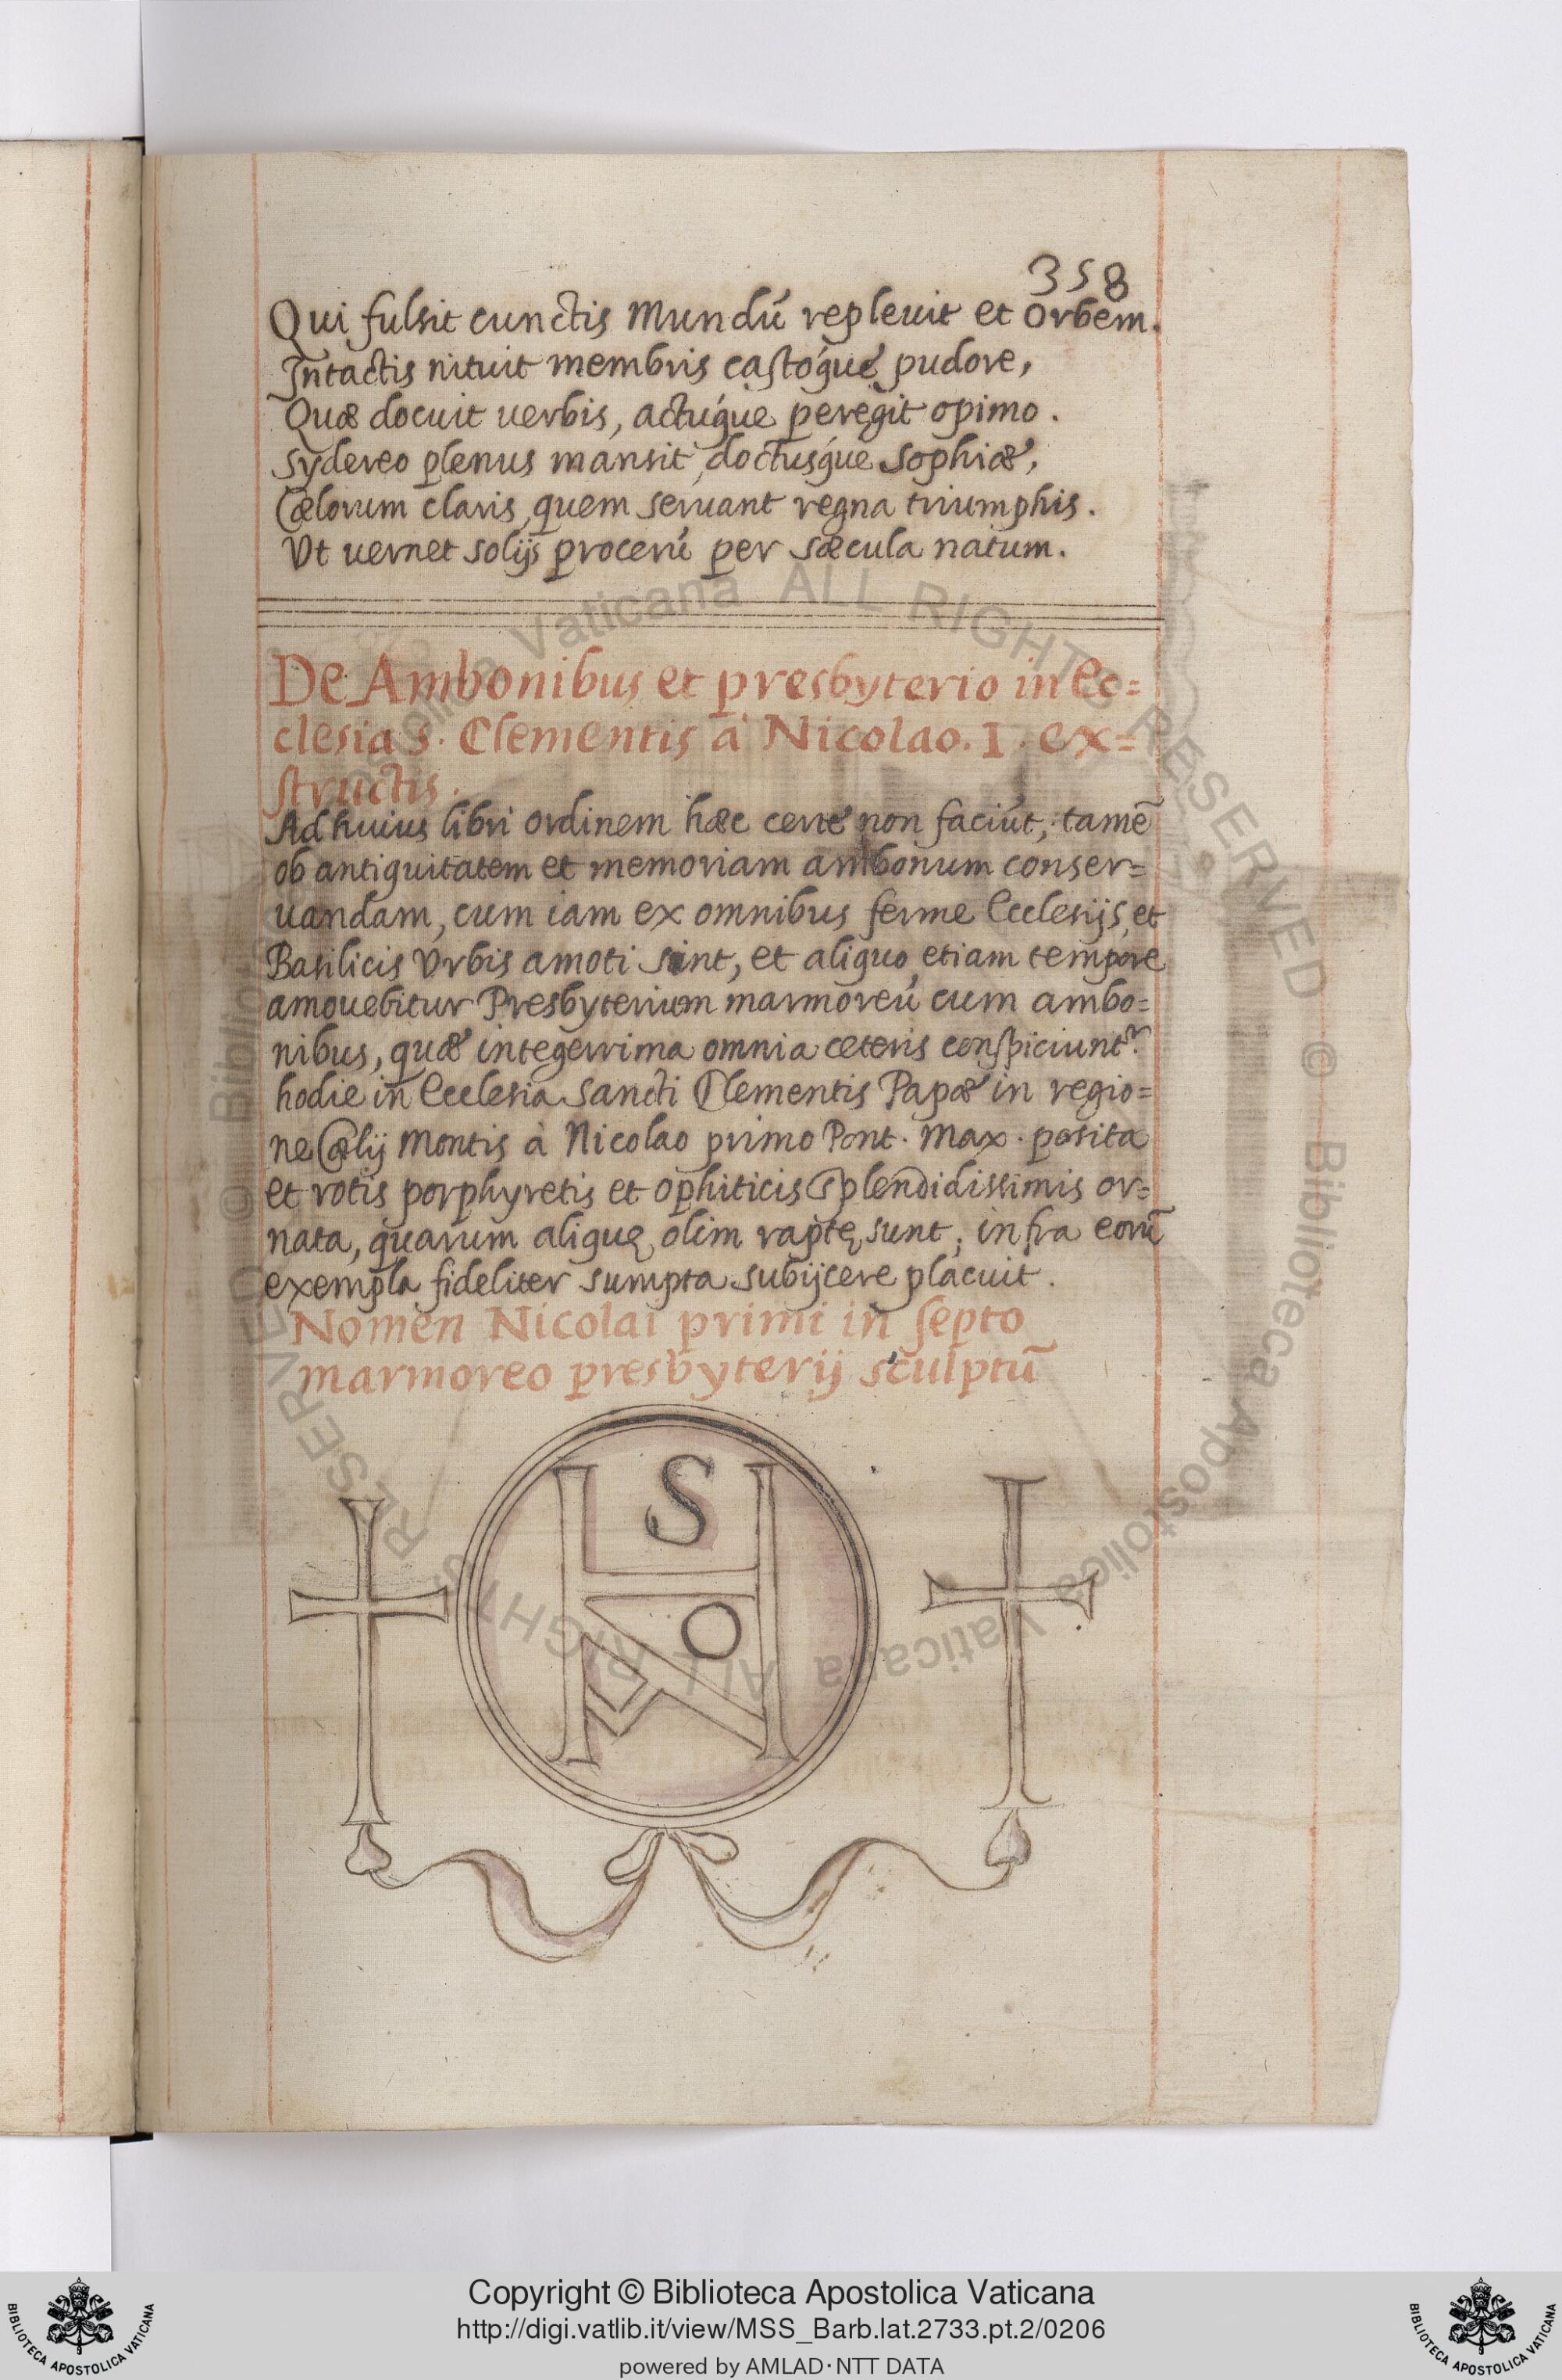 358
Qui fulsit cunctis Mundū repleuit et Orbem.
Intactis nituit membris castóque pudore,
Quæ docuit uerbis, actúque peregit opimo.
Sydereo plenus mansit, doctúsque Sophiæ,
Cælorum claris, quem seruant regna triumphis.
Vt uernet solijs procerū per sæcula natum.
De Ambonibus et presbyterio in Ec=
clesia S. Clementis à Nicolao. I. ex=
structis.
Ad huius libri ordinem hæc certe non faciūt, tamē
ob antiquitatem et memoriam ambonum conser=
uandam, cum iam ex omnibus ferme Ecclesijs, et
Basilicis Vrbis amoti sint, et aliquo etiam tempore
amouebitur Presbyterium marmoreū cum ambo=
nibus, quæ integerrima omnia ceteris conspiciuntr
hodie in Ecclesia Sancti Clementis Papæ in regio=
ne Cælij Montis à Nicolao primo Pont. Max. posita
et rotis porphyretis et ophiticis splendidissimis or=
nata, quarum aliquę olim raptę sunt, infra eorū
exempla fideliter sumpta subijcere placuit.
Nomen Nicolai primi in septo
marmoreo presbyterij sculptū
S
O
© Biblioteca Apostolica Vaticana ALL RIGHTS RESERVED
© Biblioteca Apostolica Vaticana ALL RIGHTS RESERVED
Copyright © Biblioteca Apostolica Vaticana
http://digi.vatlib.it/view/MSS_Barb.lat.2733.pt.2/0206
powered by AMLAD·NTT DATA
BIBLIOTECA APOSTOLICA VATICANA
BIBLIOTECA APOSTOLICA VATICANA